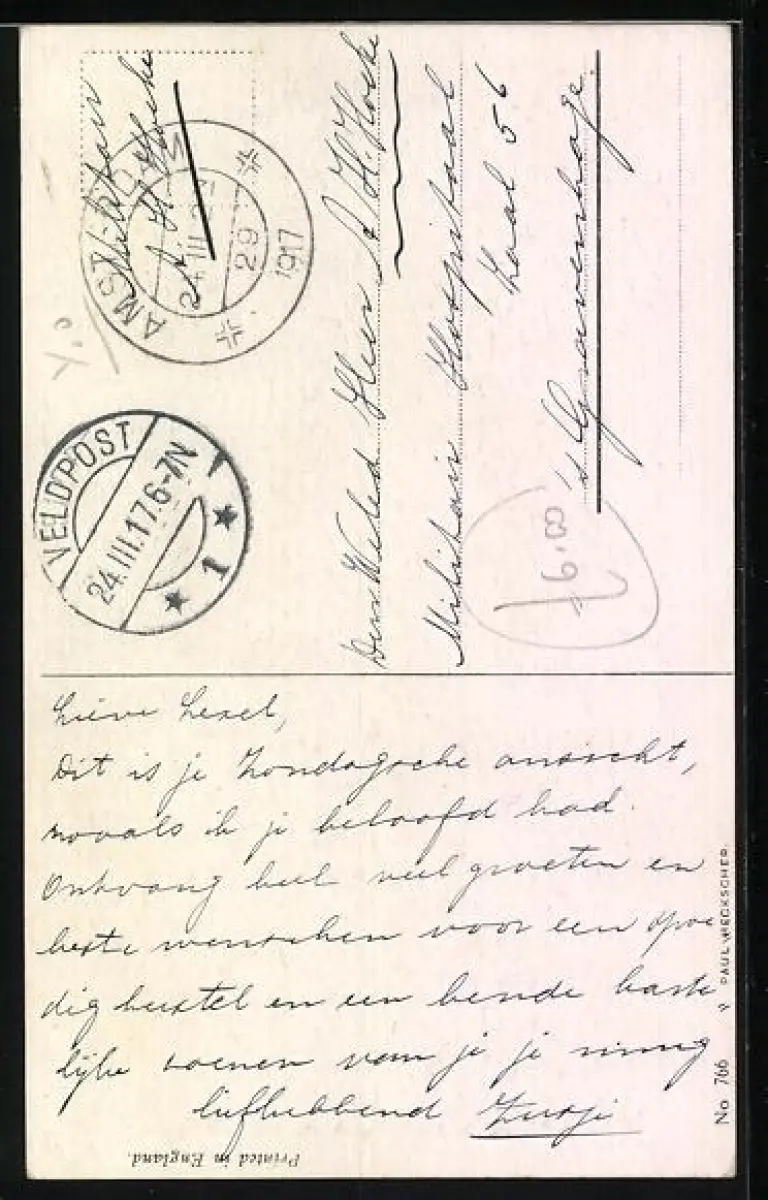 Militair
A H Hoeke
AMST
24 III 29
1917
VELDPOST
24.III.17.6-7N
1
Den Weled Heer A H. Hoeke
Militair Hospitaal
Zaal 56
's Gravenhage.
6.00
Lieve
Dit is je Zondagsche ansicht,
zooals ik je beloofd had.
Ontvang heel veel groeten en
beste wenschen voor een spoe
dig herstel en een bende harte
lijke zoenen van je je innig
liefhebbend Zusje
Printed in England.
No 766 " PAUL HECKSCHER.